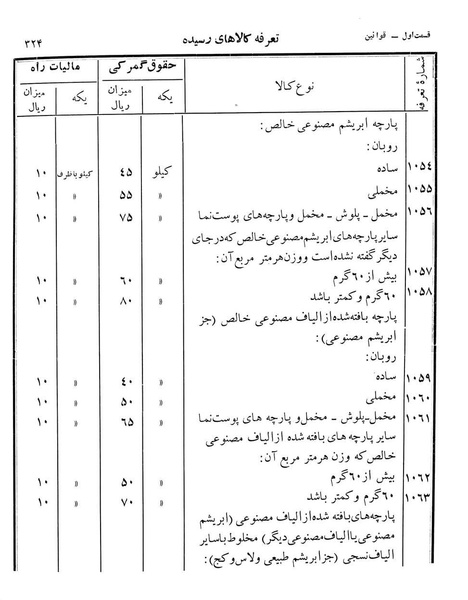 قسمت اول – قوانین
تعرفه کالاهای رسیده
۳۲۴
شمارهٔ تعرفه
نوع کالا
حقوق گمرکی
مالیات راه
یکه
میزان ریال
یکه
میزان ریال
پارچه ابریشم مصنوعی خالص:
روبان:
۱۰۵۴ ساده کیلو ۴۵ کیلو باظرف ۱۰
۱۰۵۵ مخملی » ۵۵ » ۱۰
۱۰۵۶ مخمل – پلوش – مخمل و پارچه‌های پوست‌نما » ۷۵ » ۱۰
سایر پارچه‌های ابریشم مصنوعی خالص که در جای
دیگر گفته نشده است و وزن هر متر مربع آن:
۱۰۵۷ بیش از ۶۰ گرم » ۶۰ » ۱۰
۱۰۵۸ ۶۰ گرم و کمتر باشد » ۸۰ » ۱۰
پارچه بافته شده از الیاف مصنوعی خالص (جز
ابریشم مصنوعی):
روبان:
۱۰۵۹ ساده » ۴۰ » ۱۰
۱۰۶۰ مخملی » ۵۰ » ۱۰
۱۰۶۱ مخمل-پلوش – مخمل و پارچه های پوست‌نما » ۶۵ » ۱۰
سایر پارچه های بافته شده از الیاف مصنوعی
خالص که وزن هر متر مربع آن:
۱۰۶۲ بیش از ۶۰ گرم » ۵۰ » ۱۰
۱۰۶۳ ۶۰ گرم و کمتر باشد » ۷۰ » ۱۰
پارچه‌های بافته شده از الیاف مصنوعی (ابریشم
مصنوعی با الیاف مصنوعی دیگر) مخلوط با سایر
الیاف نسجی (جز ابریشم طبیعی ولاس و کج):